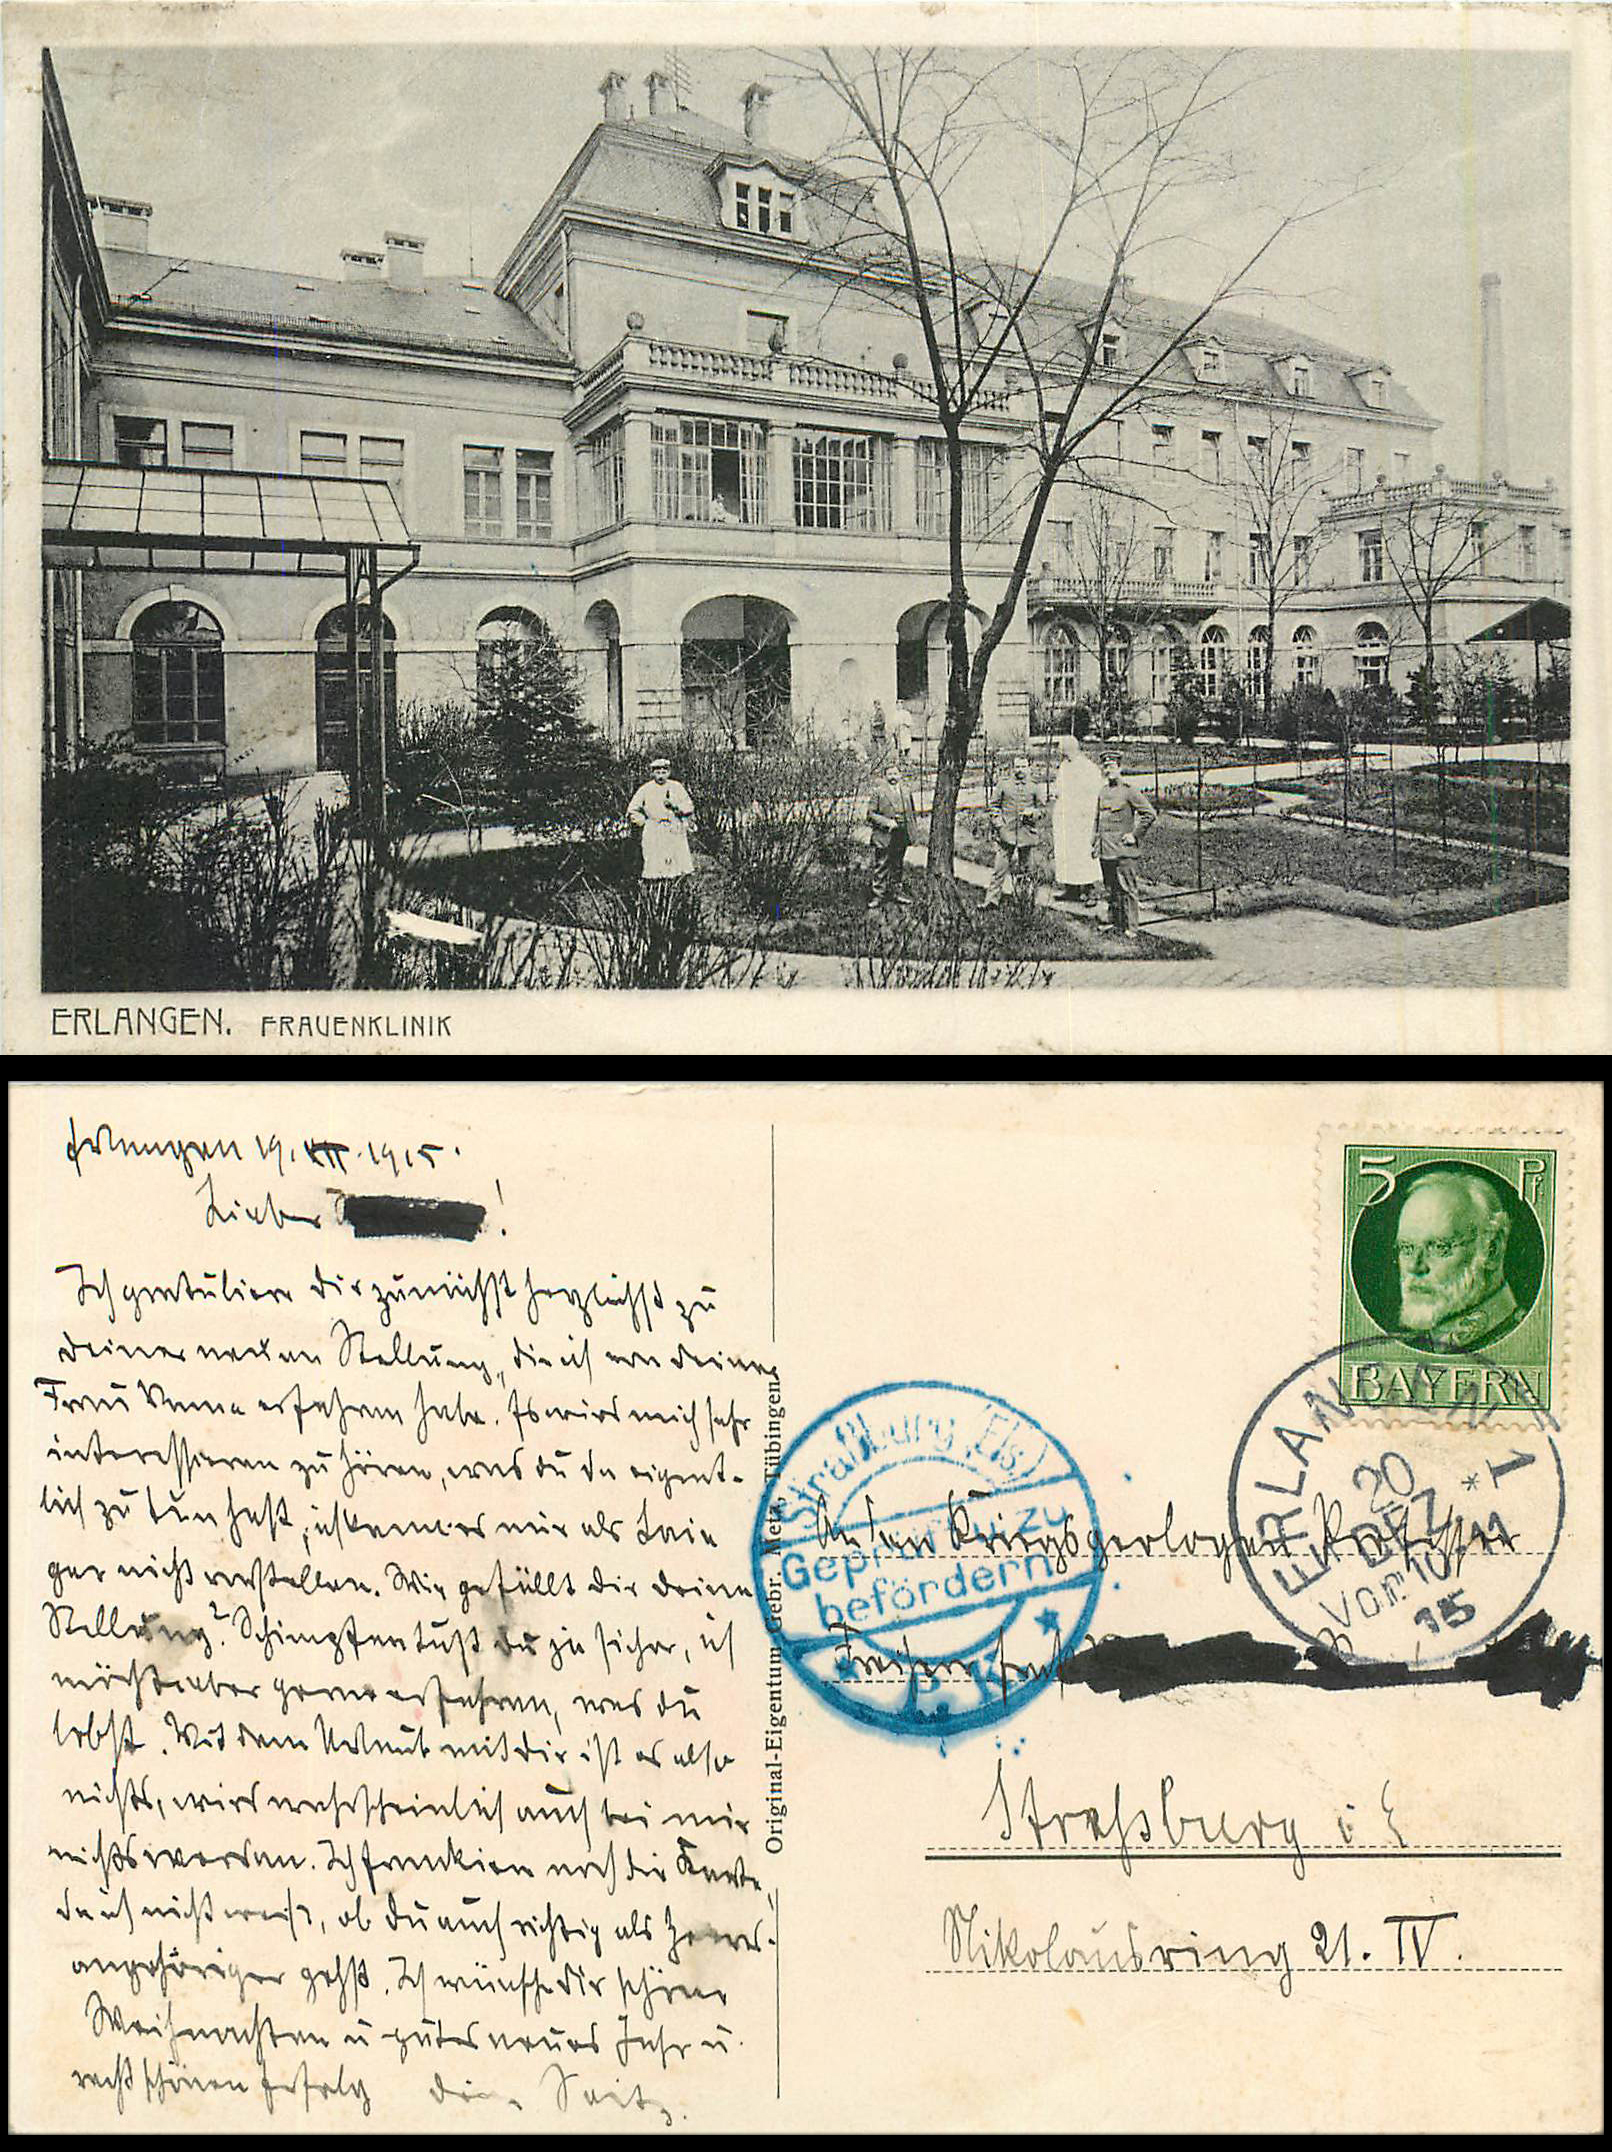 ERLANGEN. FRAUENKLINIK
Erlangen 19. XII. 1915.
Lieber !
Ich gratuliere dir zunächst herzlichst zu
deiner neuen Stellung, die ich von deiner
Frau Mama erfahren habe. Es wird mich sehr
interessieren zu hören, was du da eigent-
lich zu tun hast, ich kann es mir als Laie
gar nicht vorstellen. Wie gefällt dir deine
Stellung? Schimpfen tust du ja sicher, ich
möchte aber gerne erfahren, was du
lobst. Mit dem Urlaub mit dir ist es also
nichts, wird wahrscheinlich auch bei mir
nichts werden. Ich frankiere noch die Karte,
da ich nicht weiß, ob du auch richtig als Heeres-
angehöriger gehst. Ich wünsche dir schöne
Weihnachten u gutes neues Jahr u.
recht schönen Erfolg Dein Seitz.
Original-Eigentum Gebr. Metz, Tübingen.
5 Pf
BAYERN
ERLANGEN 1
20
DEZ
Vorm
15
Straßburg (Els.)
Geprüft u. zu
befördern
P. K.
An den Kriegsgeologen Professor
Straßburg i E
Nikolausring 21. IV.